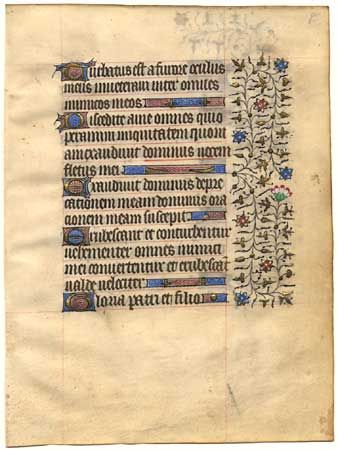 Turbatus est a furore oculus
meus inveteravi inter omnes
inimicos meos
Discedite a me omnes qui o
peramini iniquitatem quoni
am exaudivit dominus vocem
fletus mei
Exaudivit dominus depre
cationem meam dominus ora
cionem meam suscepit
Erubescant et conturbentur
vehementer omnes inimici
mei convertentur et erubescant
valde velociter
Gloria patri et filio